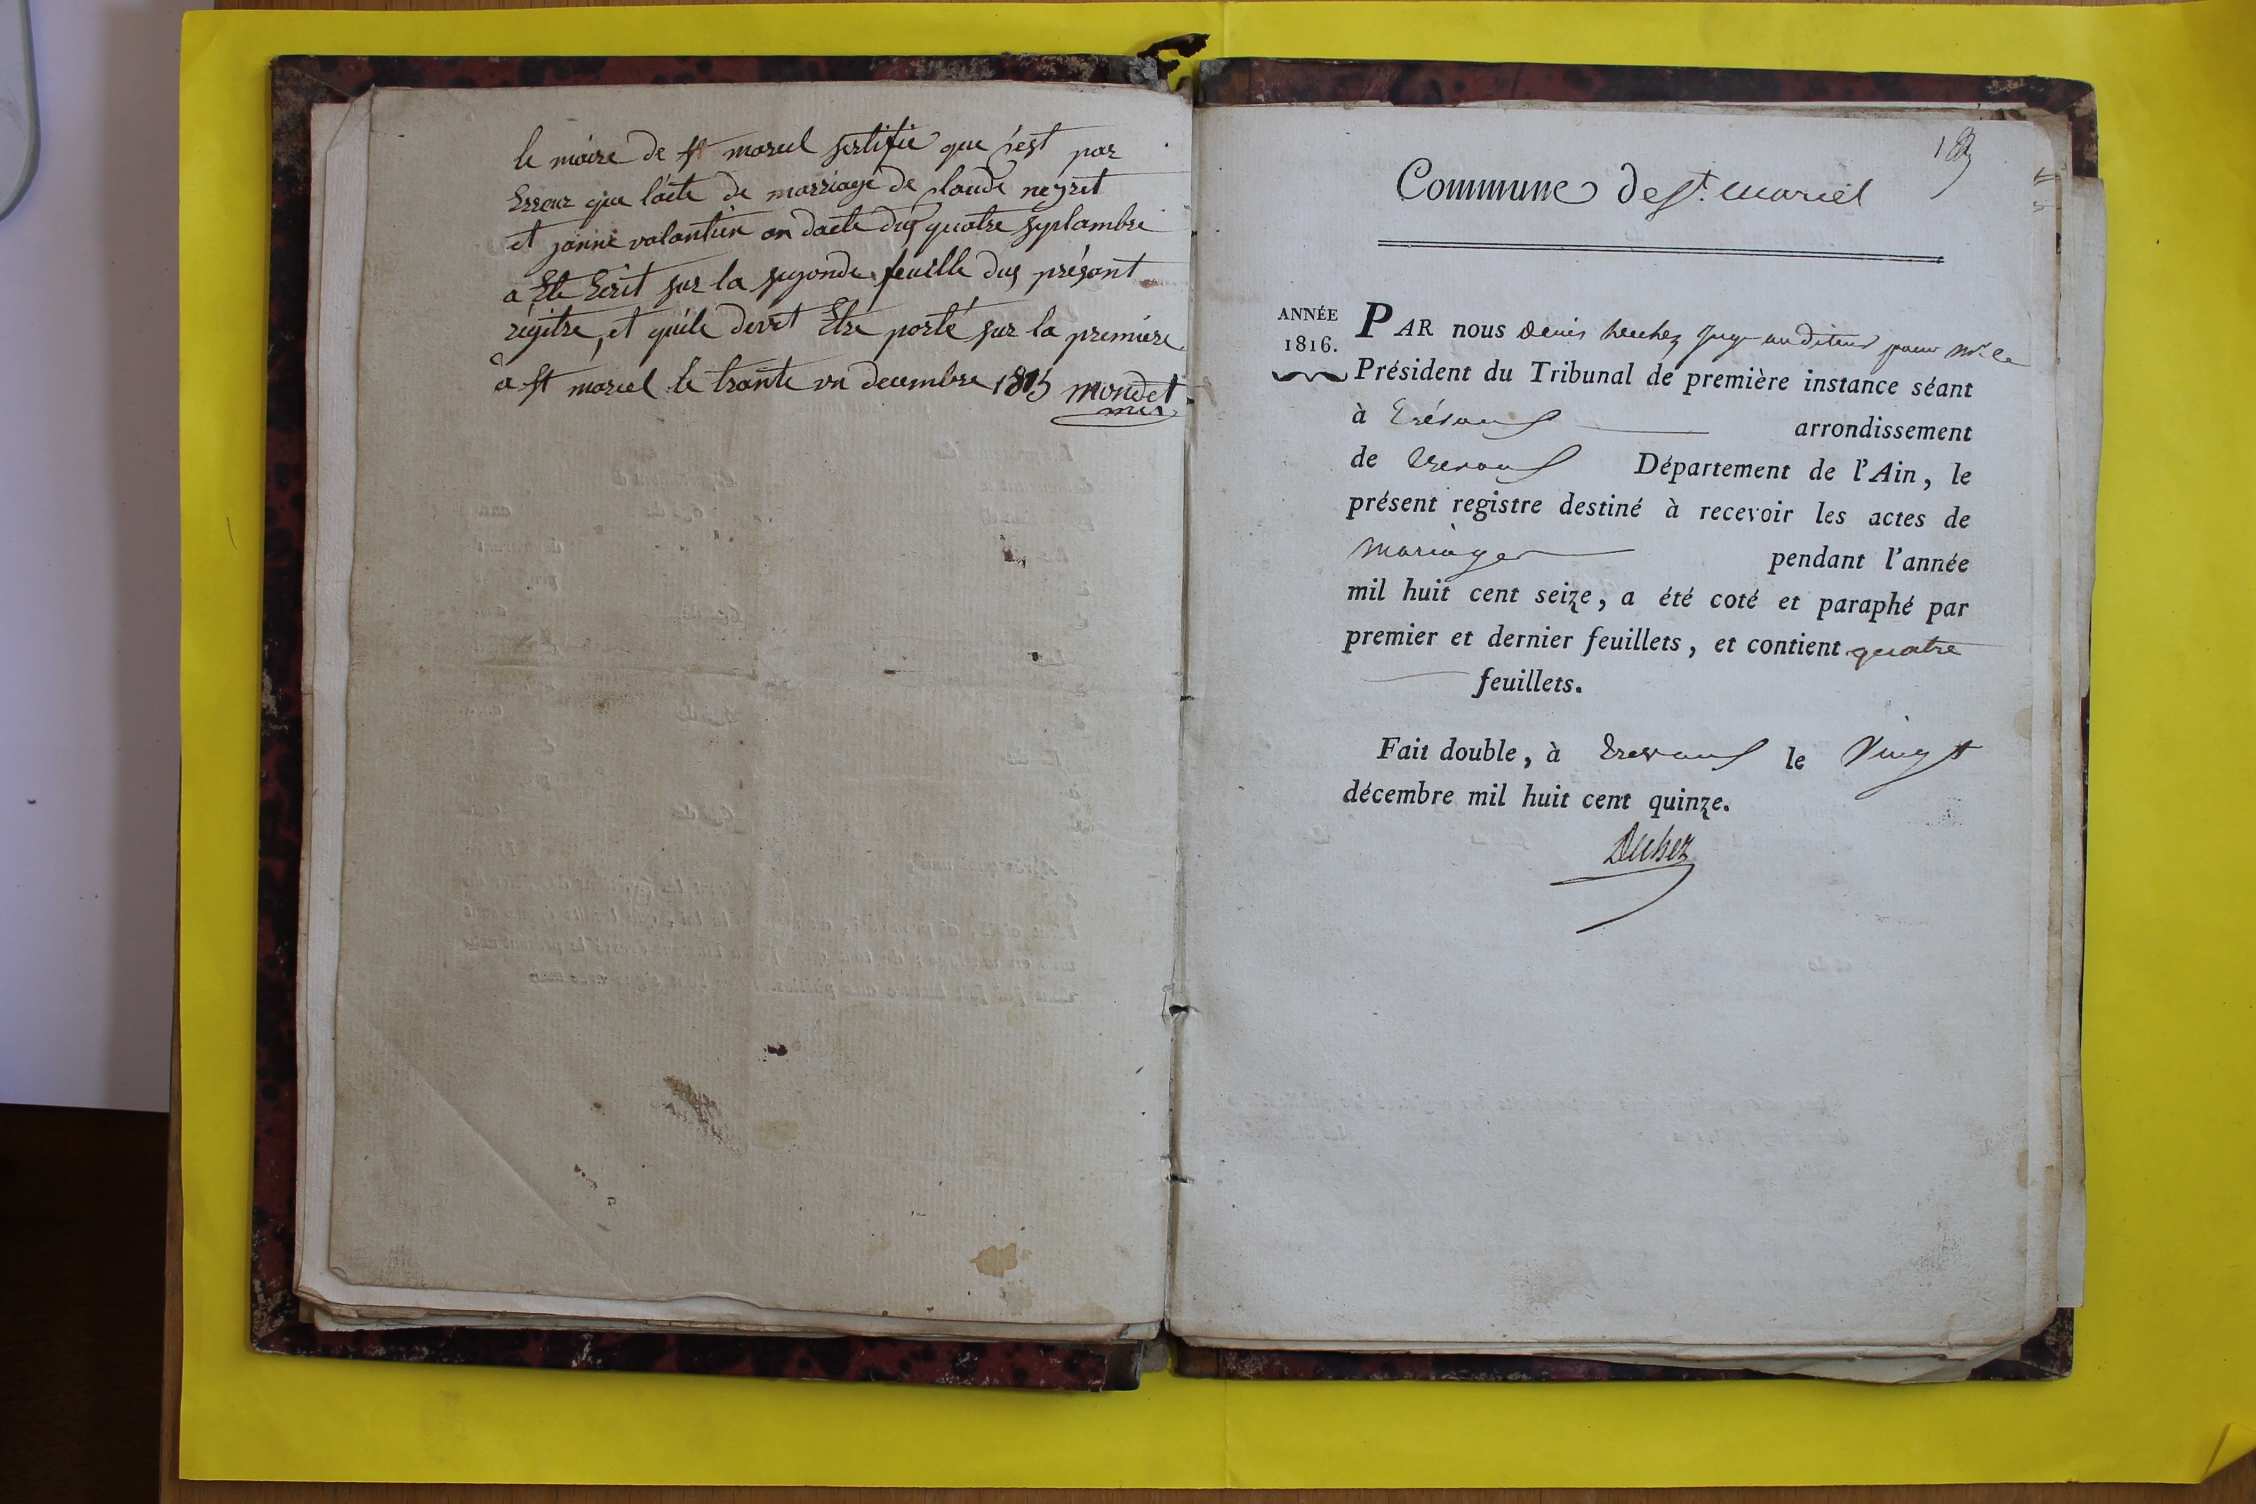 le maire de st marcel sertifie que s'est par
Erreur que l'acte de marriage de claude neyret
et janne valantin an dacte dus quatre septambre
a Ete Ecrit sur la segonde feuille dus présant
régitre, et qu'ile devet Etre porté sur la premiere
a st marcel le trante un decembre 1815 mondet
Commune de St. marcel
ANNÉE
1816.
PAR nous Denis Duchez Juge auditeur pour Mr. le
Président du Tribunal de première instance séant
à Trévoux arrondissement
de Trevoux Département de l'Ain, le
présent registre destiné à recevoir les actes de
Mariages pendant l'année
mil huit cent seize, a été coté et paraphé par
premier et dernier feuillets, et contient quatre
feuillets.
Fait double, à Trevoux le Vingt
décembre mil huit cent quinze.
Duchez